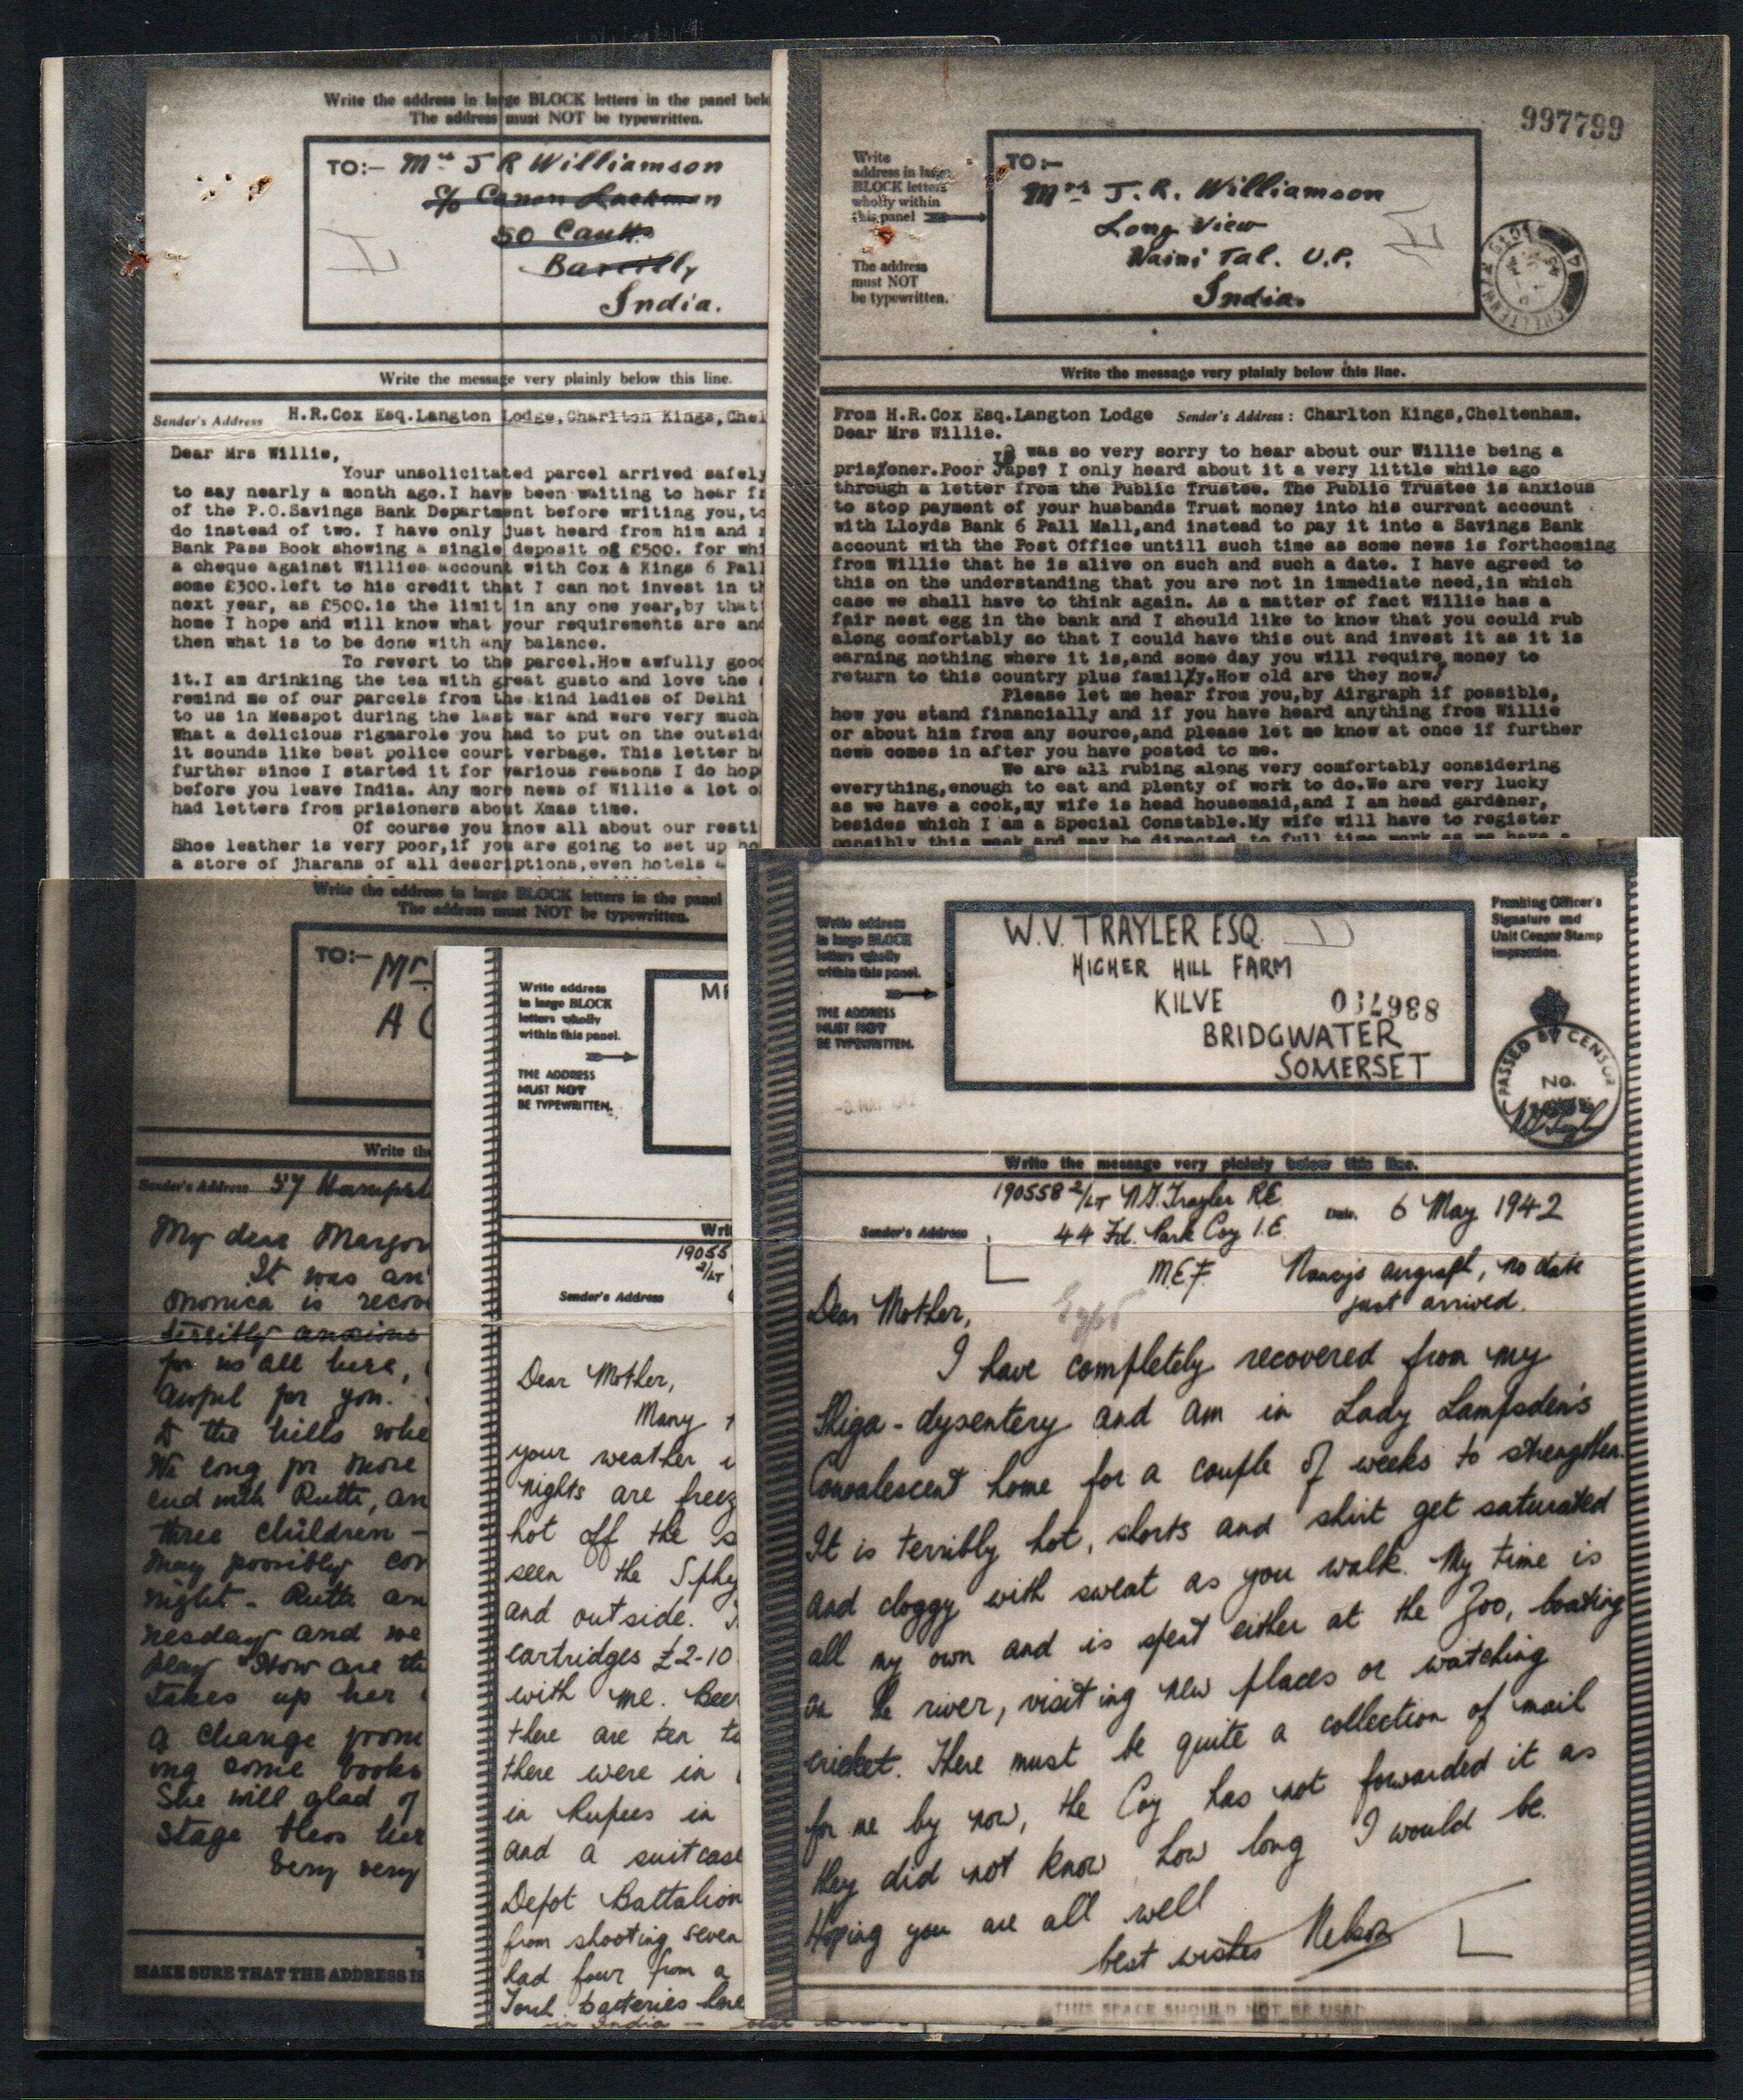 Write the address in large BLOCK letters in the panel belo
The address must NOT be typewritten.
TO:- Mrs J R Williamson
c/o Canon
50 Cantt.
Bareilly
India.
Write the message very plainly below this line.
Sender's Address H.R.Cox Esq.Langton Lodge,Charlton Kings,Chel
Dear Mrs Willie,
Your unsolicitated parcel arrived safely
to say nearly a month ago.I have been waiting to hear fr
of the P.O.Savings Bank Department before writing you,to
do instead of two. I have only just heard from him and
Bank Pass Book showing a single deposit of £500. for whi
a cheque against Willies account with Cox & Kings 6 Pall
some £300.left to his credit that I can not invest in th
next year, as £500.is the limit in any one year,by that
home I hope and will know what your requirements are and
then what is to be done with any balance.
To revert to the parcel.How awfully good
it.I am drinking the tea with great gusto and love the
remind me of our parcels from the kind ladies of Delhi
to us in Messpot during the last war and were very much
What a delicious rigmarole you had to put on the outsid
it sounds like best police court verbage. This letter h
further since I started it for various reasons I do hop
before you leave India. Any more news of Willie a lot o
had letters from prisioners about Xmas time.
Of course you know all about our resti
Shoe leather is very poor,if you are going to set up ho
a store of jharans of all descriptions,even hotels
997799
Write
address in large
BLOCK letters
wholly within
this panel
The address
must NOT
be typewritten.
TO:-
Mrs J. R. Williamson
Long View
Naini Tal. U.P.
India.
Write the message very plainly below this line.
From H.R.Cox Esq.Langton Lodge Sender's Address: Charlton Kings,Cheltenham.
Dear Mrs Willie.
I was so very sorry to hear about our Willie being a
prisioner.Poor Japs? I only heard about it a very little while ago
through a letter from the Public Trustee. The Public Trustee is anxious
to stop payment of your husbands Trust money into his current account
with Lloyds Bank 6 Pall Mall,and instead to pay it into a Savings Bank
account with the Post Office untill such time as some news is forthcoming
from Willie that he is alive on such and such a date. I have agreed to
this on the understanding that you are not in immediate need,in which
case we shall have to think again. As a matter of fact Willie has a
fair nest egg in the bank and I should like to know that you could rub
along comfortably so that I could have this out and invest it as it is
earning nothing where it is,and some day you will require money to
return to this country plus family.How old are they now?
Please let me hear from you,by Airgraph if possible,
how you stand financially and if you have heard anything from Willie
or about him from any source,and please let me know at once if further
news comes in after you have posted to me.
We are all rubing along very comfortably considering
everything,enough to eat and plenty of work to do.We are very lucky
as we have a cook,my wife is head housemaid,and I am head gardener,
besides which I am a Special Constable.My wife will have to register
possibly this week and may be directed to full time work as we have a
Write the address in large BLOCK letters in the panel
The address must NOT be typewritten.
TO:- Mr
A C
Write th
Sender's Address 57 Hampst
My dear Marjor
It was an
Monica is recov
terribly anxious
for us all here,
awful for you.
to the hills whe
We long for more
end with Ruth, an
three children -
may possibly con
night - Ruth an
nesday and we
play How are th
takes up her
a change from
ing some books
She will glad of
stage thro her
Very very
MAKE SURE THAT THE ADDRESS IS
Write address
in large BLOCK
letters wholly
within this panel.
THE ADDRESS
MUST NOT
BE TYPEWRITTEN.
Wri
19055
2/LT
Sender's Address
Dear Mother,
Many
your weather
nights are freez
hot off the s
seen the Sphy
and outside.
cartridges £2-10
with me. Beer
there are ten to
there were in
in Rupees in
and a suitcase
Depot Battalion
from shooting seven
had four from a
Torch batteries have
in India
Write address
in large BLOCK
letters wholly
within this panel.
THE ADDRESS
MUST NOT
BE TYPEWRITTEN.
W.V. TRAYLER ESQ.
HIGHER HILL FARM
KILVE
BRIDGWATER
SOMERSET
034988
Franking Officer's
Signature and
Unit Censor Stamp
impression.
PASSED BY CENSOR
NO.
Write the message very plainly below this line.
190558 2/LT N.G. Trayler R.E.
Sender's Address 44 Fd. Park Coy I.E.
M.E.F.
Date. 6 May 1942
Nancy's airgraph, no date
just arrived.
Egypt
Dear Mother,
I have completely recovered from my
Shiga-dysentery and am in Lady Lampsden's
Convalescent home for a couple of weeks to strengthen.
It is terribly hot, shorts and shirt get saturated
and cloggy with sweat as you walk. My time is
all my own and is spent either at the Zoo, boating
on the river, visiting new places or watching
cricket. There must be quite a collection of mail
for me by now, the Coy has not forwarded it as
they did not know how long I would be.
Hoping you are all well
best wishes Nelson
THIS SPACE SHOULD NOT BE USED